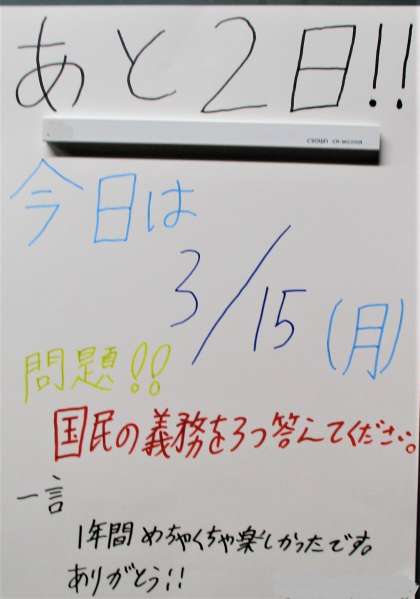 あと2日!!
今日は
3/15(月)
問題!!
国民の義務を3つ答えてください。
一言
1年間めちゃくちゃ楽しかったです。
ありがとう!!